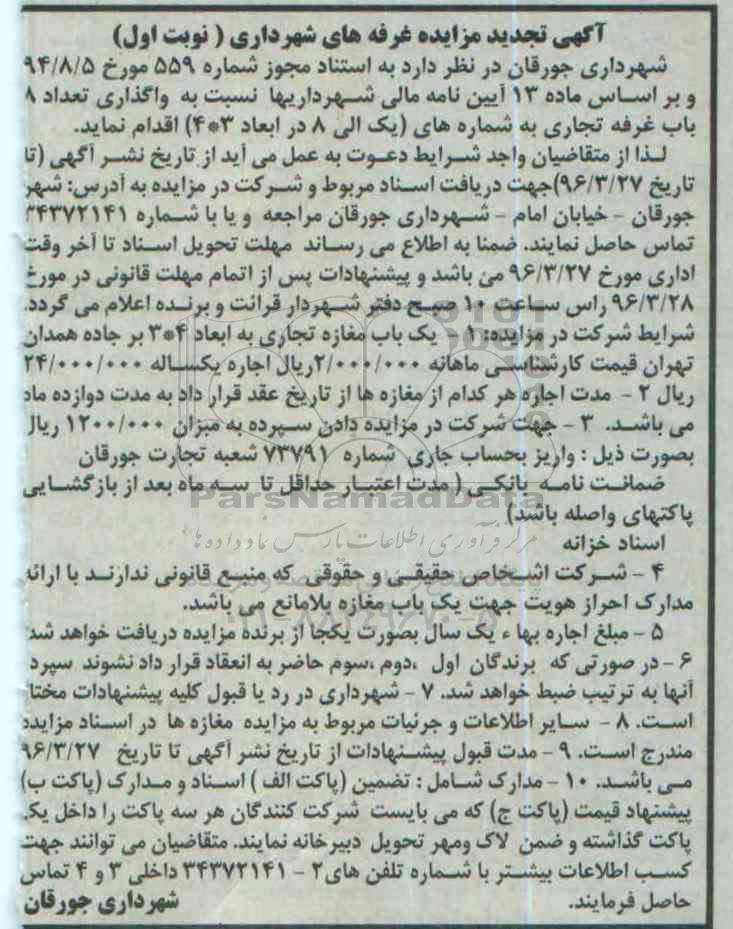 آگهی تجدید مزایده غرفه های شهرداری ( نوبت اول)
شهرداری جورقان در نظر دارد به استناد مجوز شماره ۵۵۹ مورخ ۹۴/۸/۵
و بر اساس ماده ۱۳ آیین نامه مالی شهرداریها نسبت به واگذاری تعداد ۸
باب غرفه تجاری به شماره های (یک الی ۸ در ابعاد ۳*۴) اقدام نماید.
لذا از متقاضیان واجد شرایط دعوت به عمل می آید از تاریخ نشر آگهی (تا
تاریخ ۹۶/۳/۲۷)جهت دریافت اسناد مربوط و شرکت در مزایده به آدرس: شهر
جورقان - خیابان امام - شهرداری جورقان مراجعه و یا با شماره ۳۴۳۷۲۱۴۱
تماس حاصل نمایند. ضمنا به اطلاع می رساند مهلت تحویل اسناد تا آخر وقت
اداری مورخ ۹۶/۳/۲۷ می باشد و پیشنهادات پس از اتمام مهلت قانونی در مورخ
۹۶/۳/۲۸ راس ساعت ۱۰ صبح دفتر شهردار قرائت و برنده اعلام می گردد.
شرایط شرکت در مزایده: ۱ - یک باب مغازه تجاری به ابعاد ۴*۳ بر جاده همدان
تهران قیمت کارشناسی ماهانه ۲/۰۰۰/۰۰۰ریال اجاره یکساله ۲۴/۰۰۰/۰۰۰
ریال ۲ - مدت اجاره هر کدام از مغازه ها از تاریخ عقد قرار داد به مدت دوازده ماه
می باشد. ۳ - جهت شرکت در مزایده دادن سپرده به میزان ۱۲۰۰/۰۰۰ ریال
بصورت ذیل : واریز بحساب جاری شماره ۷۳۷۹۱ شعبه تجارت جورقان
ضمانت نامه بانکی ( مدت اعتبار حداقل تا سه ماه بعد از بازگشایی
پاکتهای واصله باشد)
اسناد خزانه
۴ - شرکت اشخاص حقیقی و حقوقی که منبع قانونی ندارند با ارائه
مدارک احراز هویت جهت یک باب مغازه بلامانع می باشد.
۵ - مبلغ اجاره بهاء یک سال بصورت یکجا از برنده مزایده دریافت خواهد شد
۶ - در صورتی که برندگان اول ،دوم ،سوم حاضر به انعقاد قرار داد نشوند سپرد
آنها به ترتیب ضبط خواهد شد. ۷ - شهرداری در رد یا قبول کلیه پیشنهادات مختا
است. ۸ - سایر اطلاعات و جرئیات مربوط به مزایده مغازه ها در اسناد مزایده
مندرج است. ۹ - مدت قبول پیشنهادات از تاریخ نشر آگهی تا تاریخ ۹۶/۳/۲۷
می باشد. ۱۰ - مدارک شامل : تضمین (پاکت الف ) اسناد و مدارک (پاکت ب)
پیشنهاد قیمت (پاکت ج) که می بایست شرکت کنندگان هر سه پاکت را داخل یک
پاکت گذاشته و ضمن لاک ومهر تحویل دبیرخانه نمایند. متقاضیان می توانند جهت
کسب اطلاعات بیشتر با شماره تلفن های۲ - ۳۴۳۷۲۱۴۱ داخلی ۳ و ۴ تماس
حاصل فرمایند. شهرداری جورقان
ParsNamadData
مرکز فرآوری اطلاعات پارس نماد داده ها